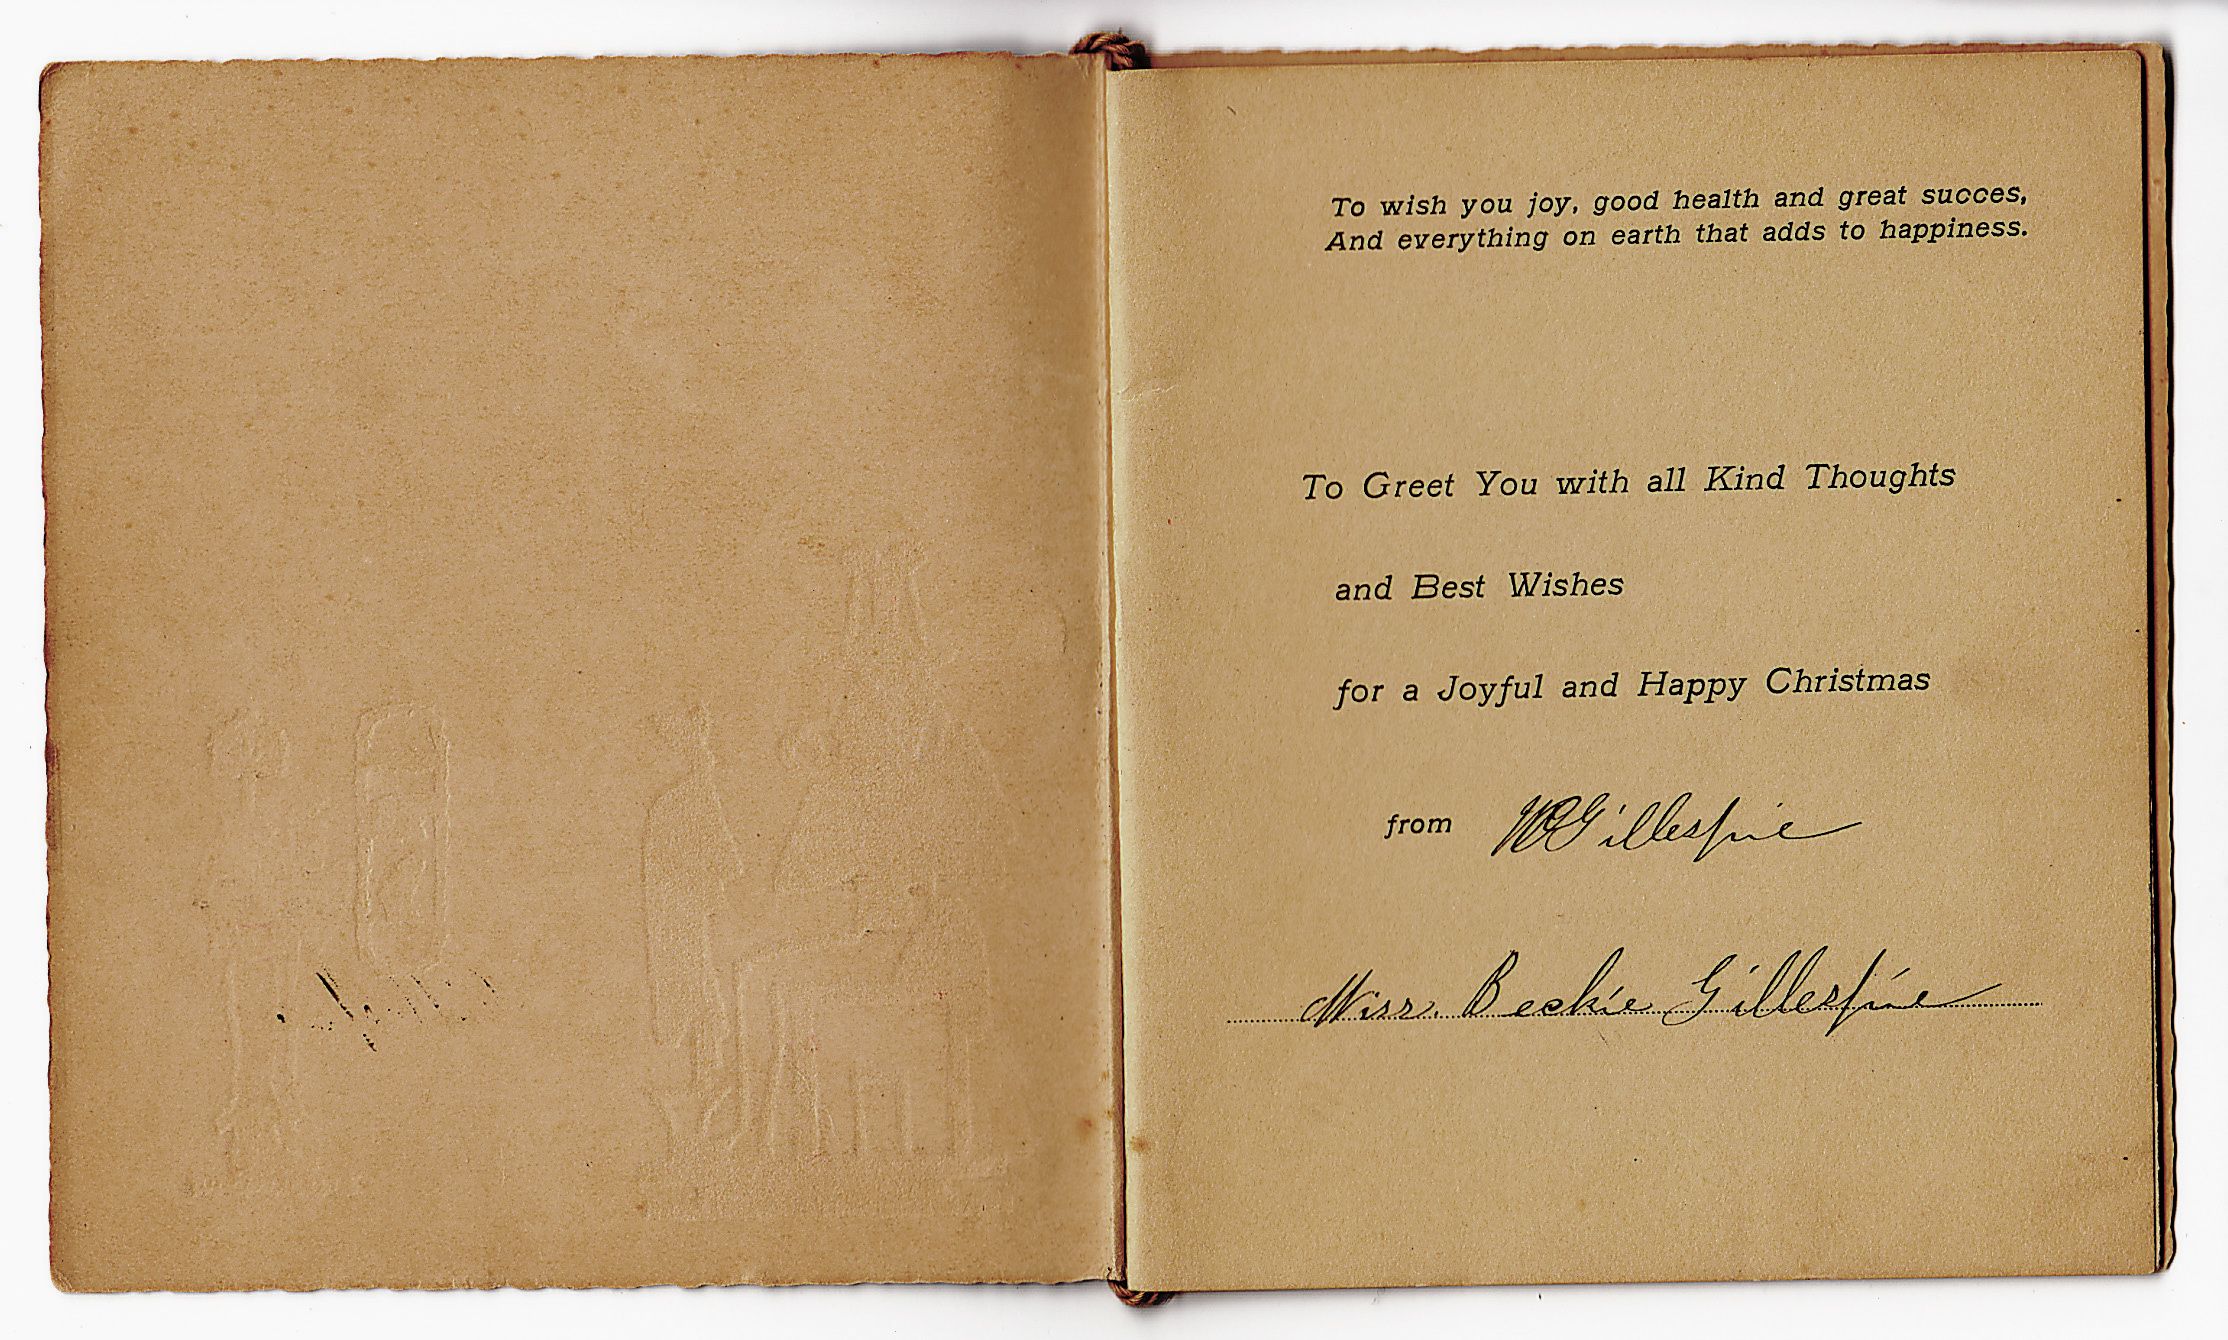 To wish you joy, good health and great succes,
And everything on earth that adds to happiness.
To Greet You with all Kind Thoughts
and Best Wishes
for a Joyful and Happy Christmas
from WGillespie
Miss. Beckie Gillespie